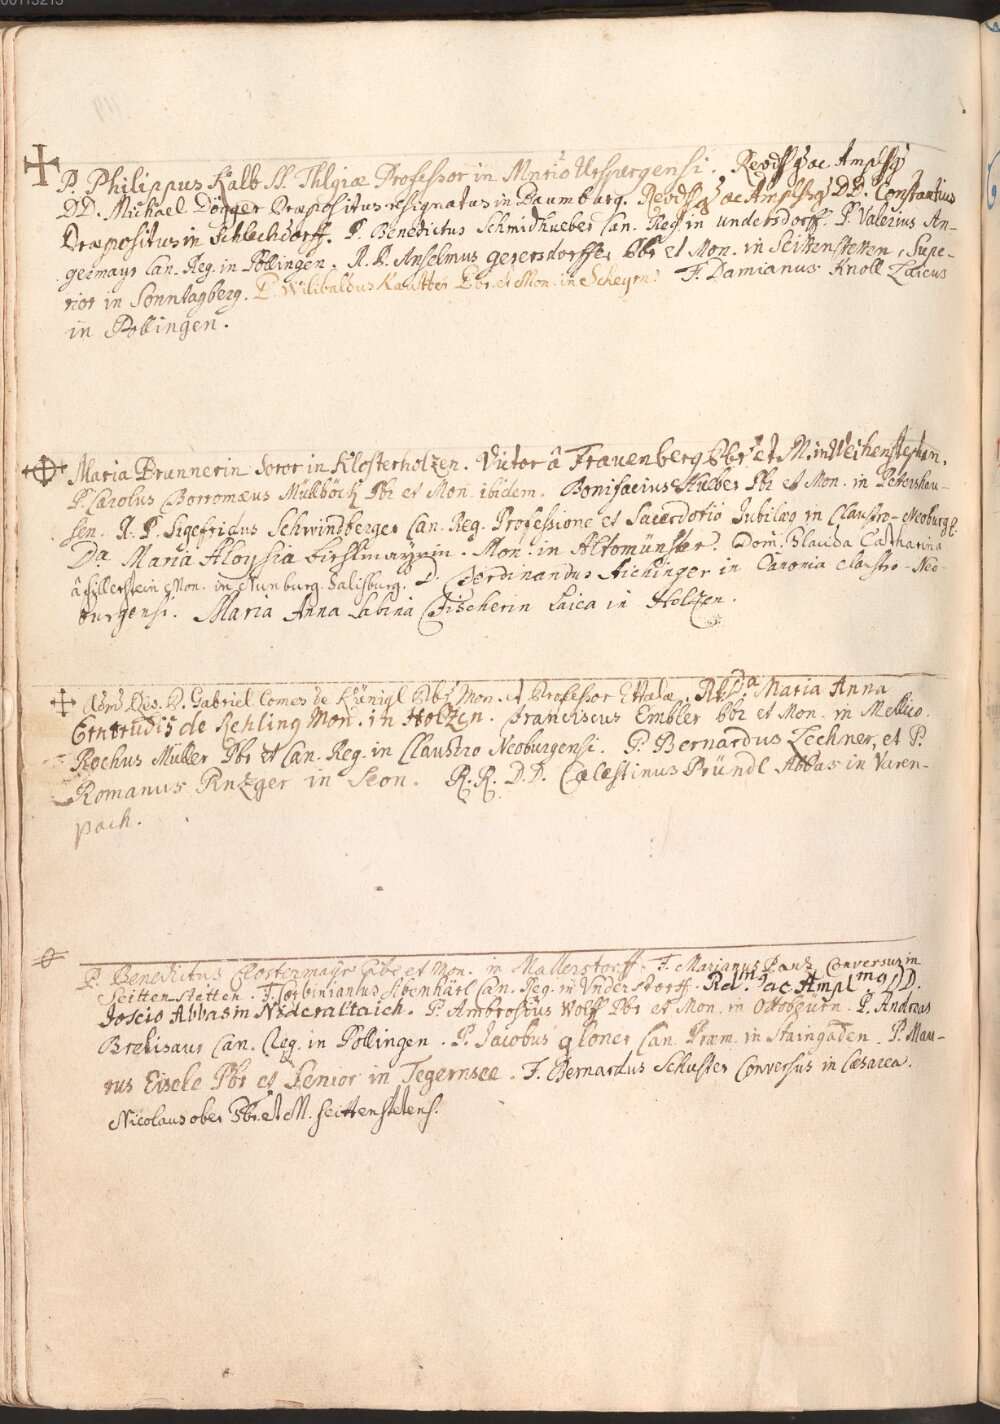 P. Philippus Kalb SS. Thlgiæ Professor in Mntrio Urspurgensi. Revdssg ac Amplssg
DD. Michael Dögger Præpositus resignatus in Baumburg. Revdssg ac Amplssg DD. Constantius
Præpositus in Schlechdorff. P. Benedictus Schmidhueber Can. Reg. in undersdorff. P. Valerius An-
germayr Can. Reg. in Pollingen. R. P. Anselmus geyersdorffer Pbr et Mon. in Seittenstetten, Supe-
rior in Sonntagberg. P. Wilibaldus Kautter Pbr. et Mon. in Scheyrn. F. Damianus Knoll Laicus
in Pollingen.
Maria Brunnerin Soror in Klosterholzen. Victor â Frauenberg Pbr et M. in Weihenstephan.
P. Carolus Borromæus Müllböck Pbr et Mon. ibidem. Bonifacius Hueber Pbr et Mon. in Petershau-
sen. R. P. Sigefridus Schwindberger Can. Reg. Professione et Sacerdotio Jubilæg in Claustro-Neoburgg.
Da Maria Aloysia Mon. in Altomünster. Dom. Placida Catharina
â Mon. in Nunburg. Salisburg. D. Ferdinandus Aichinger in Canonia Claustro-Neo-
burgensi. Maria Anna Sabina Fischerin Laica in Holzen.
P. Gabriel Comes de Künigl Pbr Mon. et Professor Ettalæ. Rda Da Maria Anna
Gertrudis de Rehling Mon. in Holzen. Franciscus Embler Pbr et Mon. in Mellico.
Rochus Müller Pbr et Can. Reg. in Claustro Neoburgensi. P. Bernardus Lechner, et P.
Romanus Pnzger in Seon. R. R. D. D. Cælestinus Pründl Abbas in Varen-
pach.
P. Benedictus Ostermayr Pbr et Mon. in Mallerstorff. F. Marianus Pauz Conversus in
Seittenstetten. F. Corbinianus Sibenhärl Can. Reg. in Undersdorff. Rdmg ac Amplmg DD.
Joscio Abbas in Nideraltaich. P. Ambrosius Wolff Pbr et Mon. in Ottobeürn. P. Andreas
Brelisaur Can. Reg. in Pollingen. P. Jacobus gloner Can. Præm. in Staingaden. P. Mau-
rus Eisele Pbr et Senior in Tegernsee. F. Bernardus Schuster Conversus in Cæsarea.
Nicolaus ober Pbr. et M. Seittenstetens.